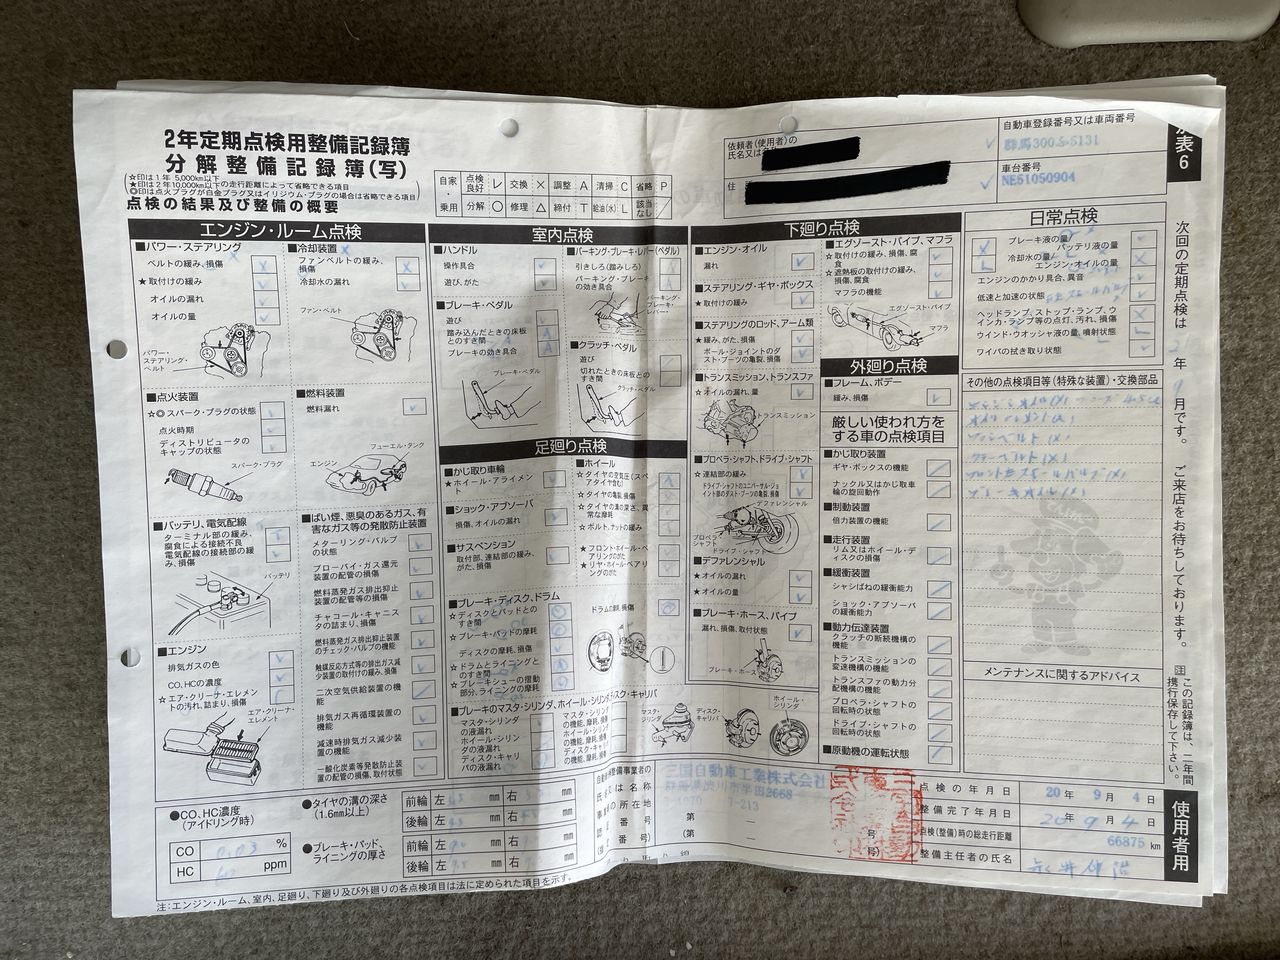 2年定期点検用整備記録簿
分解整備記録簿(写)
☆印は1年 5,000km以下
★印は2年10,000km以下の走行距離によって省略できる項目
◎印は点火プラグが白金プラグ又はイリジウム・プラグの場合は省略できる項目
点検の結果及び整備の概要
自家・乗用
点検良好 レ 交換 × 調整 A 清掃 C 省略 P
分解 ○ 修理 △ 締付 T 給油(水) L 該当なし /
依頼者(使用者)の
氏名又は
住
自動車登録番号又は車両番号
群馬300ふ5131
車台番号
NE51050904
表6
エンジン・ルーム点検
■パワー・ステアリング
ベルトの緩み、損傷
★取付けの緩み
オイルの漏れ
オイルの量
パワー・ステアリング・ベルト
■冷却装置
ファンベルトの緩み、損傷
冷却水の漏れ
ファン・ベルト
■点火装置
☆◎スパーク・プラグの状態
点火時期
ディストリビュータのキャップの状態
スパーク・プラグ
■燃料装置
燃料漏れ
フューエル・タンク
エンジン
■バッテリ、電気配線
ターミナル部の緩み、腐食による接続不良
電気配線の接続部の緩み、損傷
バッテリ
■エンジン
排気ガスの色
CO、HCの濃度
☆エア・クリーナ・エレメントの汚れ、詰まり、損傷
エア・クリーナ・エレメント
■ばい煙、悪臭のあるガス、有害なガス等の発散防止装置
メターリング・バルブの状態
ブローバイ・ガス還元装置の配管の損傷
燃料蒸発ガス排出抑止装置の配管等の損傷
チャコール・キャニスタの詰まり、損傷
燃料蒸発ガス排出抑止装置のチェック・バルブの機能
触媒反応方式等の排出ガス減少装置の取付けの緩み、損傷
二次空気供給装置の機能
排気ガス再循環装置の機能
減速時排気ガス減少装置の機能
一酸化炭素等発散防止装置の配管の損傷、取付状態
室内点検
■ハンドル
操作具合
遊び、がた
■ブレーキ・ペダル
遊び
踏み込んだときの床板とのすき間
ブレーキの効き具合
ブレーキ・ペダル
■パーキング・ブレーキ・レバー(ペダル)
引きしろ(踏みしろ)
パーキング・ブレーキの効き具合
パーキング・ブレーキ・レバー
■クラッチ・ペダル
遊び
切れたときの床板とのすき間
クラッチ・ペダル
足廻り点検
■かじ取り車輪
★ホイール・アライメント
■ショック・アブソーバ
損傷、オイルの漏れ
■サスペンション
取付部、連結部の緩み、がた、損傷
■ブレーキ・ディスク、ドラム
☆ディスクとパッドとのすき間
☆ブレーキ・パッドの摩耗
ディスクの摩耗、損傷
☆ドラムとライニングとのすき間
☆ブレーキシューの摺動部分、ライニングの摩耗
■ホイール
☆タイヤの空気圧(スペアタイヤ含む)
☆タイヤの亀裂、損傷
☆タイヤの溝の深さ、異常な摩耗
☆ボルト、ナットの緩み
★フロント・ホイール・ベアリングのがた
★リヤ・ホイール・ベアリングのがた
ドラムの摩耗、損傷
■ブレーキのマスタ・シリンダ、ホイール・シリンダ、ディスク・キャリパ
マスタ・シリンダの液漏れ
ホイール・シリンダの液漏れ
ディスク・キャリパの液漏れ
マスタ・シリンダ
ディスク・キャリパ
ホイール・シリンダ
下廻り点検
■エンジン・オイル
漏れ
■ステアリング・ギヤ・ボックス
★取付けの緩み
■ステアリングのロッド、アーム類
★緩み、がた、損傷
ボール・ジョイントのダスト・ブーツの亀裂、損傷
■トランスミッション、トランスファ
☆オイルの漏れ、量
トランスミッション
■プロペラ・シャフト、ドライブ・シャフト
☆連結部の緩み
ドライブ・シャフトのユニバーサル・ジョイント部のダスト・ブーツの亀裂、損傷
デファレンシャル
プロペラ・シャフト
ドライブ・シャフト
■デファレンシャル
★オイルの漏れ
★オイルの量
■ブレーキ・ホース、パイプ
漏れ、損傷、取付状態
ブレーキ・ホース
■エグゾースト・パイプ、マフラ
☆取付けの緩み、損傷、腐食
☆遮熱板の取付けの緩み、損傷、腐食
マフラの機能
エグゾースト・パイプ
マフラ
外廻り点検
■フレーム、ボデー
緩み、損傷
厳しい使われ方をする車の点検項目
■かじ取り装置
ギヤ・ボックスの機能
ナックル又はかじ取車輪の旋回動作
■制動装置
倍力装置の機能
■走行装置
リム又はホイール・ディスクの損傷
■緩衝装置
シャシばねの緩衝能力
ショック・アブソーバの緩衝能力
■動力伝達装置
クラッチの断続機構の機能
トランスミッションの変速機構の機能
トランスファの動力分配機構の機能
プロペラ・シャフトの回転時の状態
ドライブ・シャフトの回転時の状態
■原動機の運転状態
日常点検
ブレーキ液の量
バッテリ液の量
冷却水の量
エンジン・オイルの量
エンジンのかかり具合、異音
低速と加速の状態
ヘッドランプ、ストップ・ランプ、ウインカ・ランプ等の点灯、汚れ、損傷
ウインド・ウオッシャ液の量、噴射状態
ワイパの拭き取り状態
その他の点検項目等(特殊な装置)・交換部品
メンテナンスに関するアドバイス
次回の定期点検は 年 9月です。 ご来店をお待ちしております。
注 この記録簿は、二年間携行保存して下さい。
使用者用
●CO、HC濃度
(アイドリング時)
CO 0.03 %
HC ppm
●タイヤの溝の深さ
(1.6mm以上)
前輪 左 mm 右 mm
後輪 左 mm 右 mm
●ブレーキ・パッド、ライニングの厚さ
前輪 左 mm 右 mm
後輪 左 mm 右 mm
三国自動車工業株式会社
群馬県渋川市半田2668
点検の年月日 20年 9月 4日
整備完了年月日 20年 9月 4日
点検(整備)時の総走行距離 66875 km
整備主任者の氏名
注:エンジン・ルーム、室内、足廻り、下廻り及び外廻りの各点検項目は法に定められた項目を示す。